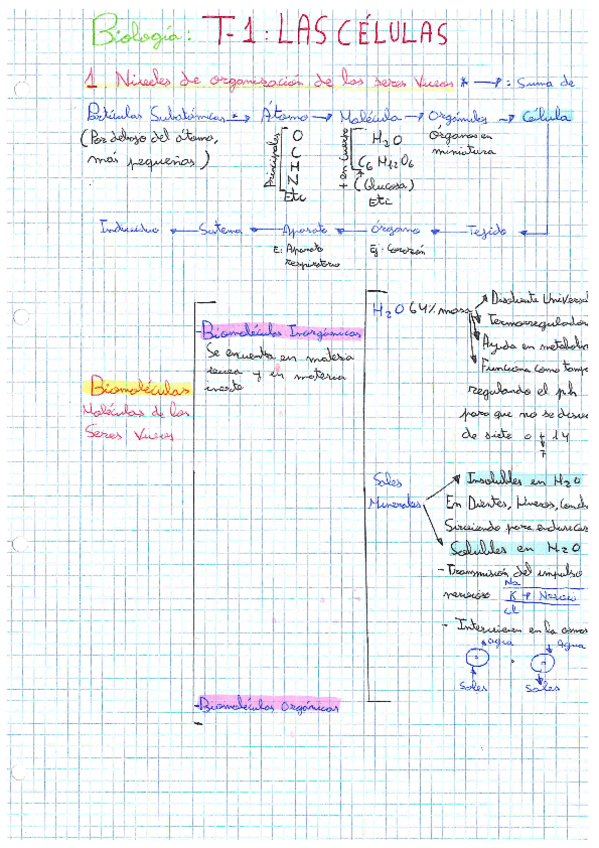 Biología: T-1: LAS CÉLULAS
1. Niveles de organización de los seres vivos * → : Suma de
Partículas Subatómicas * → Átomo → Molécula → Orgánulos → Célula
(Por debajo del atomo,
más pequeñas)
Principales
O
C
H
N
Etc
H2O
C6 H12 O6
(Glucosa)
Etc
Órganos en
miniatura
Individuo ← Sistema ← Aparato ← Órgano ← Tejido
E: Aparato
respiratorio
Ej: Corazón
Biomoléculas
Moléculas de los
Seres Vivos
-Biomoléculas Inorgánicas
Se encuentra en materia
y en materia
inerte
H2O 64% masa
Disolvente Universal
Termorregulador
Ayuda en metabolis
Funciona como tamp
regulando el ph
para que no se desvie
de siete o + 14
7
Sales
Minerales
Insolubles en H2O
En Dientes, Huesos, Conch
Sirviendo para endurecer
Solubles en H2O
- Transmisión del impulso
nervioso
Na
K → Nervio
Cl
- Intervienen en la osmos
agua
agua
Sales
Sales
-Biomoléculas Orgánicas